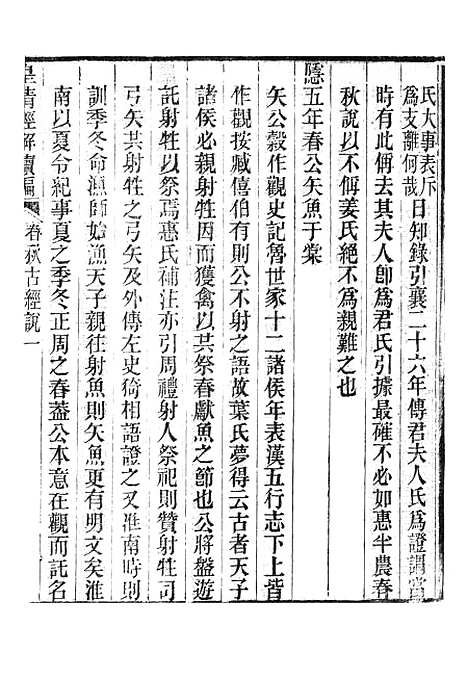 氏大事表斥
爲支離何哉
日知錄引襄二十六年傳君夫人氏爲證謂當
時有此偁去其夫人卽爲君氏引據最確不必如惠半農春
秋說以不偁姜氏絕不爲親難之也
隱五年春公矢魚于棠
矢公穀作觀史記魯世家十二諸侯年表漢五行志下上皆
作觀按臧僖伯有則公不射之語故葉氏夢得云古者天子
諸侯必親射牲因而獲禽以共祭春獻魚之節也公將盤遊
託射牲以祭焉惠氏補注亦引周禮射人祭祀則贊射牲司
弓矢共射牲之弓矢及外傳左史猗相語證之又淮南時則
訓季冬命漁師始漁天子親往射魚則矢魚更有明文矣淮
南以夏令紀事夏之季冬正周之春蓋公本意在觀而託名
皇清經解續編
春秋古經說一